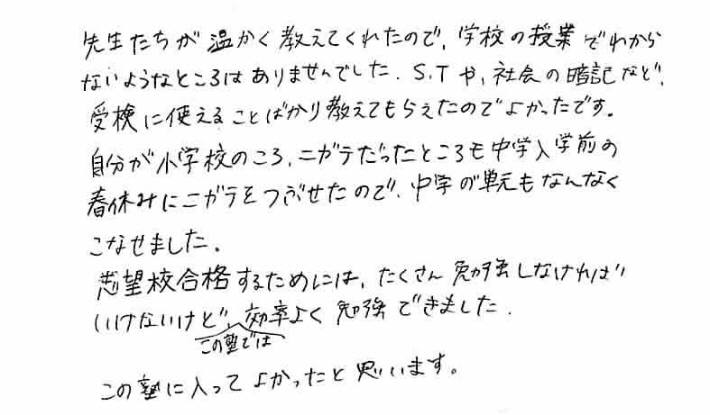 先生たちが温かく教えてくれたので、学校の授業でわから
ないようなところはありませんでした。S.Tや、社会の暗記など、
受検に使えることばかり教えてもらえたのでよかったです。
自分が小学校のころ、ニガテだったところも中学入学前の
春休みにニガテをつぶせたので、中学の単元もなんなく
こなせました。
志望校合格するためには、たくさん勉強しなければ
いけないけど、効率よく勉強できました。
この塾では
この塾に入ってよかったと思います。